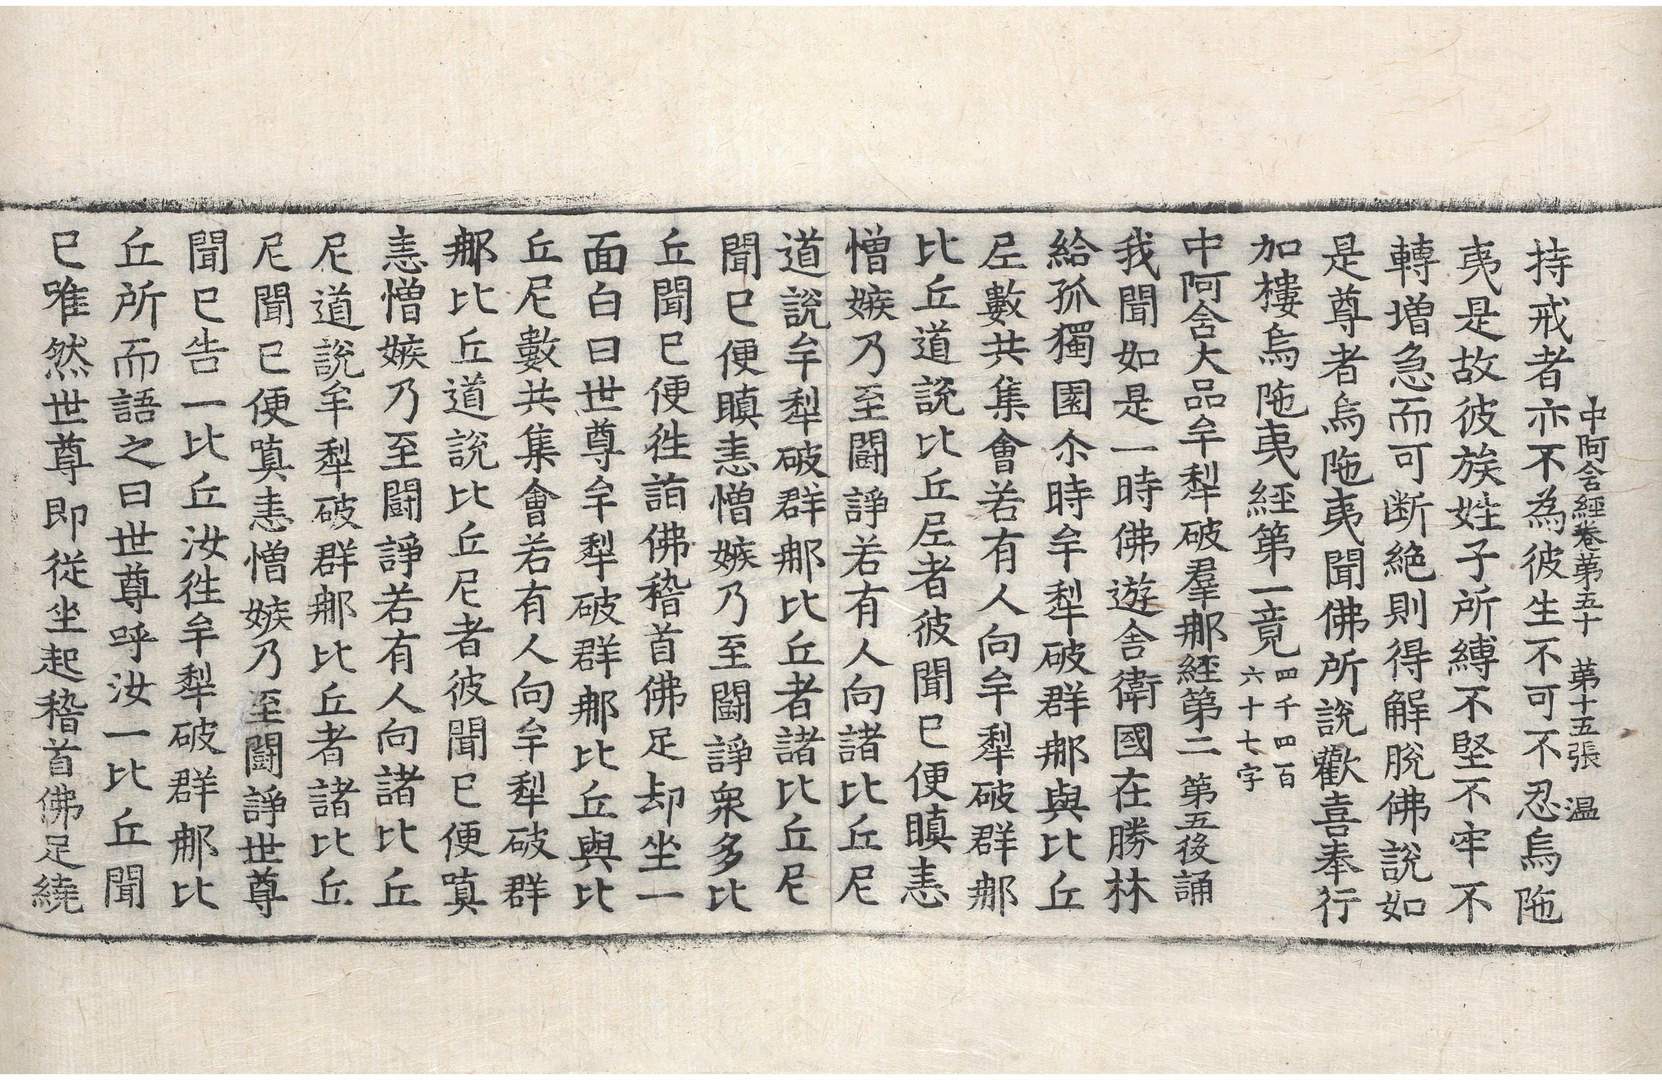 中阿含經卷第五十 第十五張 温
持戒者亦不為彼生不可不忍烏陁
夷是故彼族姓子所縛不堅不牢不
轉增急而可断絶則得解脫佛說如
是尊者烏陁夷聞佛所說歡喜奉行
加樓烏陁夷經第一竟四千四百六十七字
中阿含大品牟犁破羣那經第二 第五後誦
我聞如是一時佛遊舍衛國在勝林
給孤獨園尒時牟犁破群那與比丘
尼數共集會若有人向牟犁破群那
比丘道說比丘尼者彼聞已便瞋恚
憎嫉乃至鬪諍若有人向諸比丘尼
道說牟犁破群那比丘者諸比丘尼
聞已便瞋恚憎嫉乃至鬪諍衆多比
丘聞已便徃詣佛稽首佛足却坐一
面白曰世尊牟犁破群那比丘與比
丘尼數共集會若有人向牟犁破群
那比丘道說比丘尼者彼聞已便瞋
恚憎嫉乃至鬪諍若有人向諸比丘
尼道說牟犁破群那比丘者諸比丘
尼聞已便瞋恚憎嫉乃至鬪諍世尊
聞已告一比丘汝徃牟犁破群那比
丘所而語之曰世尊呼汝一比丘聞
已唯然世尊即從坐起稽首佛足繞